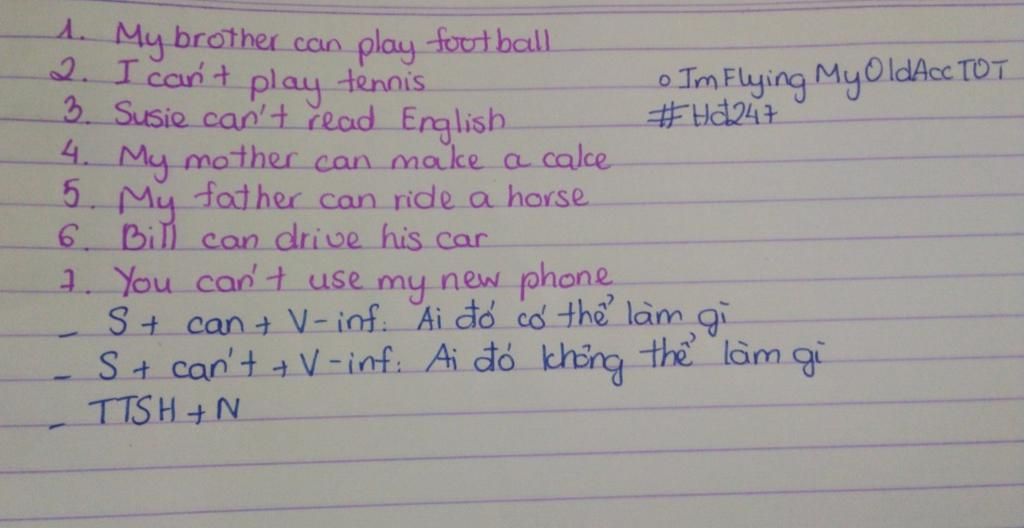 1. My brother can play football
2. I can't play tennis
o ImFlyingMyOldAccTOT
3. Susie can't read English
#Hd247
4. My mother can make a cake
5. My father can ride a horse
6. Bill can drive his car
7. You can't use my new phone
_ S + can + V-inf: Ai đó có thể làm gì
_ S + can't + V-inf: Ai đó không thể làm gì
_ TTSH + N